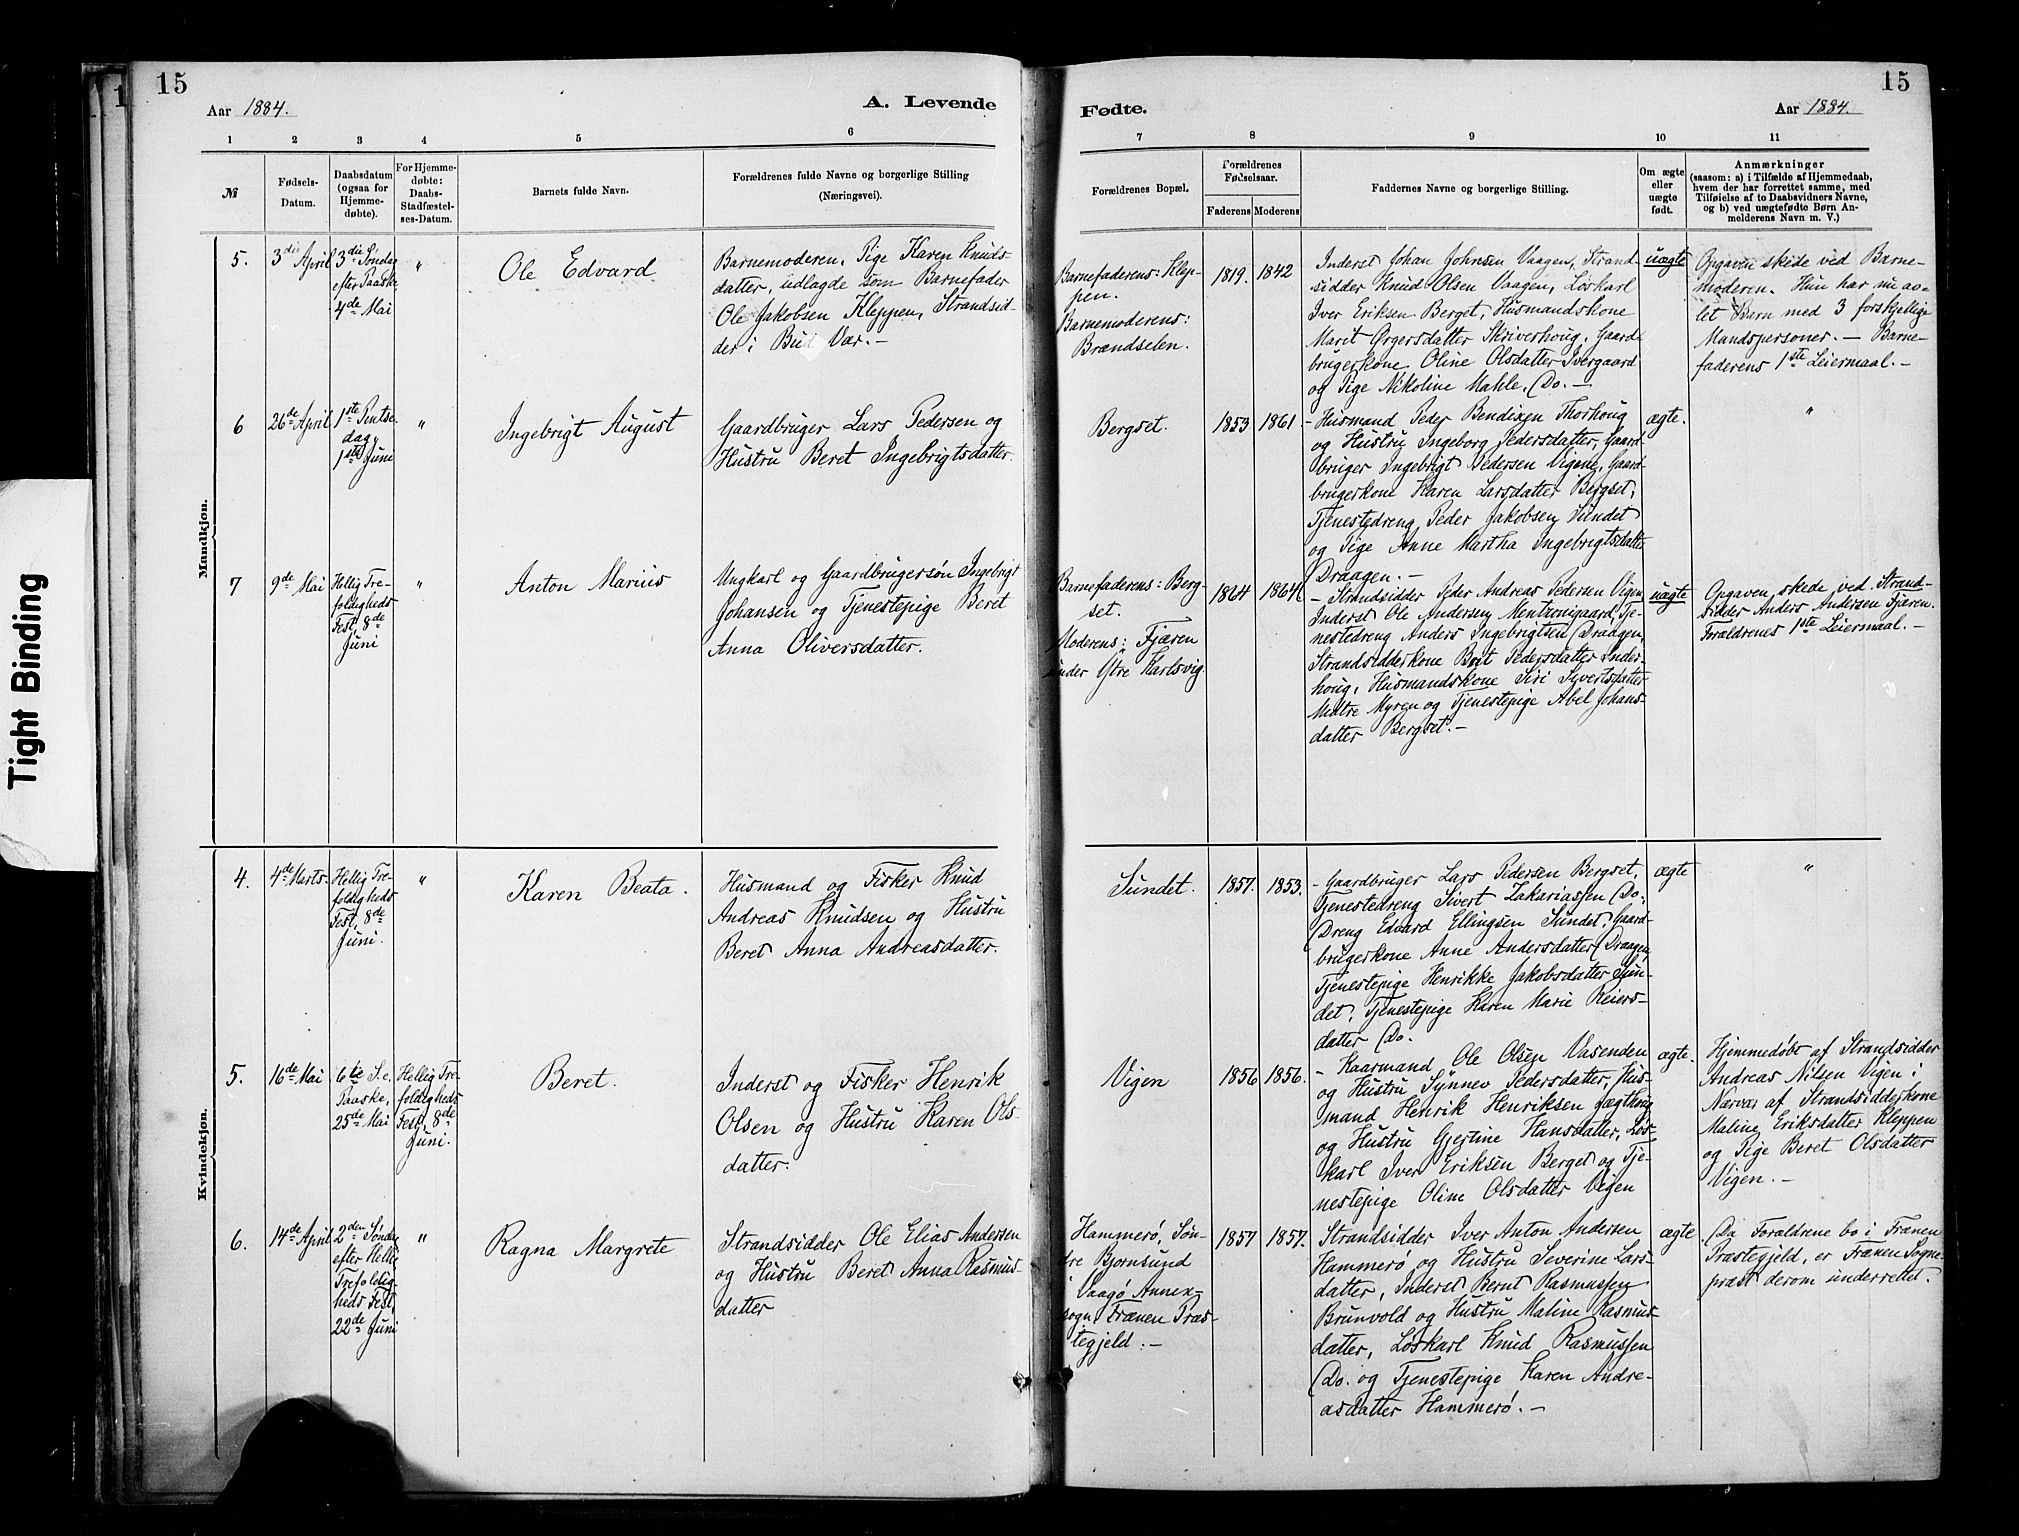 15
15
Aar 1884.
A. Levende
Fødte.
Aar 1884.
1 2 3 4 5 6
7 8 9 10 11
№
Fødsels-
Datum.
Daabsdatum
(ogsaa for
Hjemme-
døbte).
For Hjemme-
døbte:
Daabs-
Stadfæstel-
ses-Datum.
Barnets fulde Navn.
Forældrenes fulde Navne og borgerlige Stilling
(Næringsvei).
Forældrenes Bopæl.
Forældrenes
Fødselsaar.
Faderens Moderens
Faddernes Navne og borgerlige Stilling.
Om ægte
eller
uægte
født.
Anmærkninger
(saasom: a) i Tilfælde af Hjemmedaab,
hvem der har forrettet samme, med
Tilføielse af to Daabsvidners Navne,
og b) ved uægtefødte Børn An-
melderens Navn m. V.)
Mandkjøn.
5.
3die April
3die Søndag
efter Paaske
4de Mai
"
Ole Edvard
Barnemoderen, Pige Karen Knuds-
datter, udlagde som Barnefader
Ole Jakobsen Kleppen, Strandsid-
der i Bud Vær. -
Barnefaderens: Klep-
pen.
Barnemoderens:
Brændselen.
1819. 1842
Inderst Johan Johnsen Vaagen, Strand-
sidder Knud Olsen Vaagen, Løskarl
Iver Eriksen Berget, Husmandskone
Marit Ørgersdatter Skriverhoug, Gaard-
brugerkone Oline Olsdatter Ivergaard
og Pige Nikoline Mahle, Do. -
uægte
Opgaven skede ved Barne-
moderen. Hun har nu av-
let Børn med 3 forskjellige
Mandspersoner. - Barne-
faderens 1ste Leiermaal. -
6
26de April
1ste Pintse-
dag,
1ste Juni
"
Ingebrigt August
Gaardbruger Lars Pedersen og
Hustru Beret Ingebrigtsdatter.
Bergset.
1853 1861
- Husmand Peder Bendixen Thorhoug
og Hustru Ingeborg Pedersdatter, Gaard-
bruger Ingebrigt Pedersen Vigene, Gaard-
brugerkone Karen Larsdatter Bergset,
Tjenestedreng Peder Jakobsen Sundet
og Pige Anne Martha Ingebrigtsdatter
Draagen. -
ægte.
"
7
9de Mai
Hellig Tre-
foldigheds
Fest, 8de
Juni
"
Anton Marius
Ungkarl og Gaardbrugersøn Ingebrigt
Johansen og Tjenestepige Beret
Anna Oliversdatter.
Barnefaderens: Berg-
set.
Moderens: Fjæren
under Ytre Harlsvig
1864 1864
- Strandsidder Peder Andreas Pedersen Vigen,
Inderst Ole Andersen Mentzonigaard, Tje-
nestedreng Anders Ingebrigtsen Draagen,
Strandsidderkone Brit Pedersdatter Inder-
houg, Husmandskone Siri Syvertsdatter
Malre Myren og Tjenestepige Abel Johans-
datter Bergset. -
uægte
Opgaven skede ved Strand-
sidder Anders Andersen Fjæren.
Forældrenes 1ste Leiermaal. -
Kvindekjøn.
4.
4de Marts.
Hellig Tre-
foldigheds
Fest, 8de
Juni.
"
Karen Beata.
Husmand og Fisker Knud
Andreas Knudsen og Hustru
Beret Anna Andreasdatter.
Sundet.
1857. 1853.
- Gaardbruger Lars Pedersen Bergset,
Tjenestedreng Sivert Zakariassen Do.
Dreng Edvard Ellingsen Sundet, Gaard-
brugerkone Anne Andersdatter Draagen,
Tjenestepige Henrikke Jakobsdatter Sun-
det, Tjenestepige Karen Marie Reiers-
datter Do.
ægte
"
5.
16de Mai
6te S. e.
Paaske,
25de Mai
Hellig Tre-
foldigheds
Fest, 8de
Juni.
Beret.
Inderst og Fisker Henrik
Olsen og Hustru Karen Ols-
datter.
Vigen
1856 1856.
- Kaarmand Ole Olsen Vasenden
og Hustru Synnev Pedersdatter, Hus-
mand Henrik Henriksen Jægthoug
og Hustru Gjertine Hansdatter, Løs-
karl Iver Eriksen Berget og Tje-
nestepige Oline Olsdatter Vigen
ægte.
Hjemmedøbt af Strandsidder
Andreas Nilsen Vigen i
Nærvær af Strandsidderkone
Maline Eriksdatter Kleppen
og Pige Beret Olsdatter
Vigen. -
6.
14de April
2den Søndag
efter Hellig
Trefoldig-
heds Fest,
22de Juni
"
Ragna Margrete
Strandsidder Ole Elias Andersen
og Hustru Beret Anna Rasmus-
datter
Hammerø, Søn-
dre Bjornsund
i Vaagø Annex-
sogn Frænen Præs-
tegjeld. -
1857 1857.
Strandsidder Iver Anton Andersen
Hammerø og Hustru Severine Lars-
datter, Inderst Bernt Rasmussen
Brunvold og Hustru Maline Rasmus-
datter, Løskarl Knud Rasmussen
Do. og Tjenestepige Karen Andre-
asdatter Hammerø. -
ægte
Da Forældrene bo i Frænen
Præstegjeld, er Frænen Sogne-
præst derom underrettet.
Tight Binding